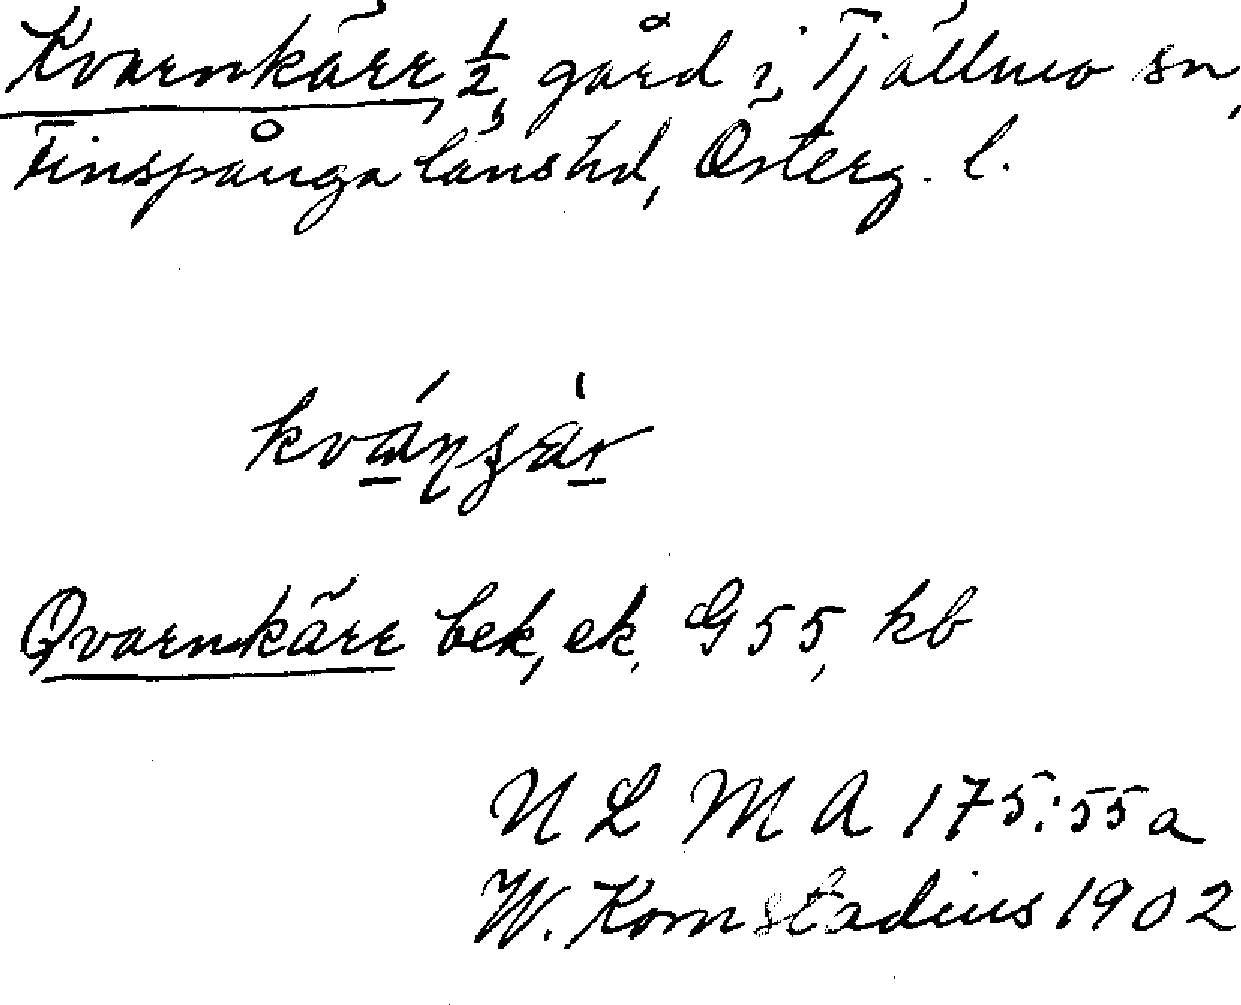 Kvarnkärr, 1/2, gård i Tjällmo sn,
Finspånga länshd, Österg. l.
Qvarnkärr bek, ek, G 55, kb
U L M A 175:55a
W. Kornstadius 1902